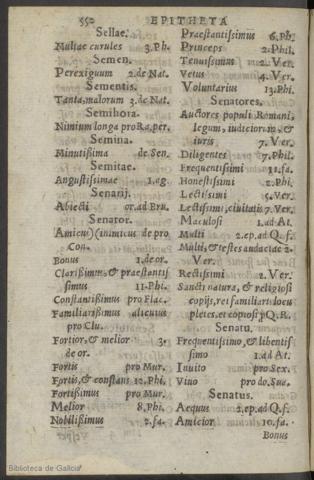 550 EPITHETA
Sellae.
Multae curules 3.Ph.
Semen.
Perexiguum 2.de Nat.
Sementis.
Tanta, malorum 3.de Nat.
Semihora.
Nimium longa pro Ra.per.
Semina.
Minutißima de Sen.
Semitae.
Angustissimae 1.ag.
Senarij.
Abiecti or.ad Bru.
Senator.
Amicus) (inimicus de pro
Con.
Bonus 1.de or.
Clarißimus, & praestantis
simus 11.Phi.
Constantißimus pro Flac.
Familiarißimus alicuius
pro Clu.
Fortior, & melior 3.
de or.
Fortis pro Mur.
Fortis, & constans 10.Phi.
Fortißimus pro Mur.
Melior 8.Phi.
Nobilißimus 2.fa.
Praestantissimus 6.Ph.
Princeps 2.Phil.
Tenuissimus 2.Ver.
Vetus 4.Ver.
Voluntarius 13.Phi.
Senatores.
Auctores populi Romani,
legum, iudiciorum, &
iuris 7.Ver.
Diligentes 7.Phi.
Frequentissimi 11.fa.
Honestissimi 2.Phi.
Lectissimi 5.Ver.
Lectissimi, ciuitatis 7.Ver.
Maculosi 1.ad At.
Multi 2.ep.ad Q.f.
Multi, & testes audaciae 2.
Ver.
Rectissimi 2.Ver.
Sancti natura, & religiosi
copijs, rei familiari locu
pletes, et copiosi pQ.R.
Senatu.
Frequentissimo, & libentis
simo 1.ad At.
Inuito pro Sex.
Viuo pro do.sua.
Senatus.
Aequus 2.ep.ad Q.f.
Amicior 10.fa.
Bonus
Biblioteca de Galicia